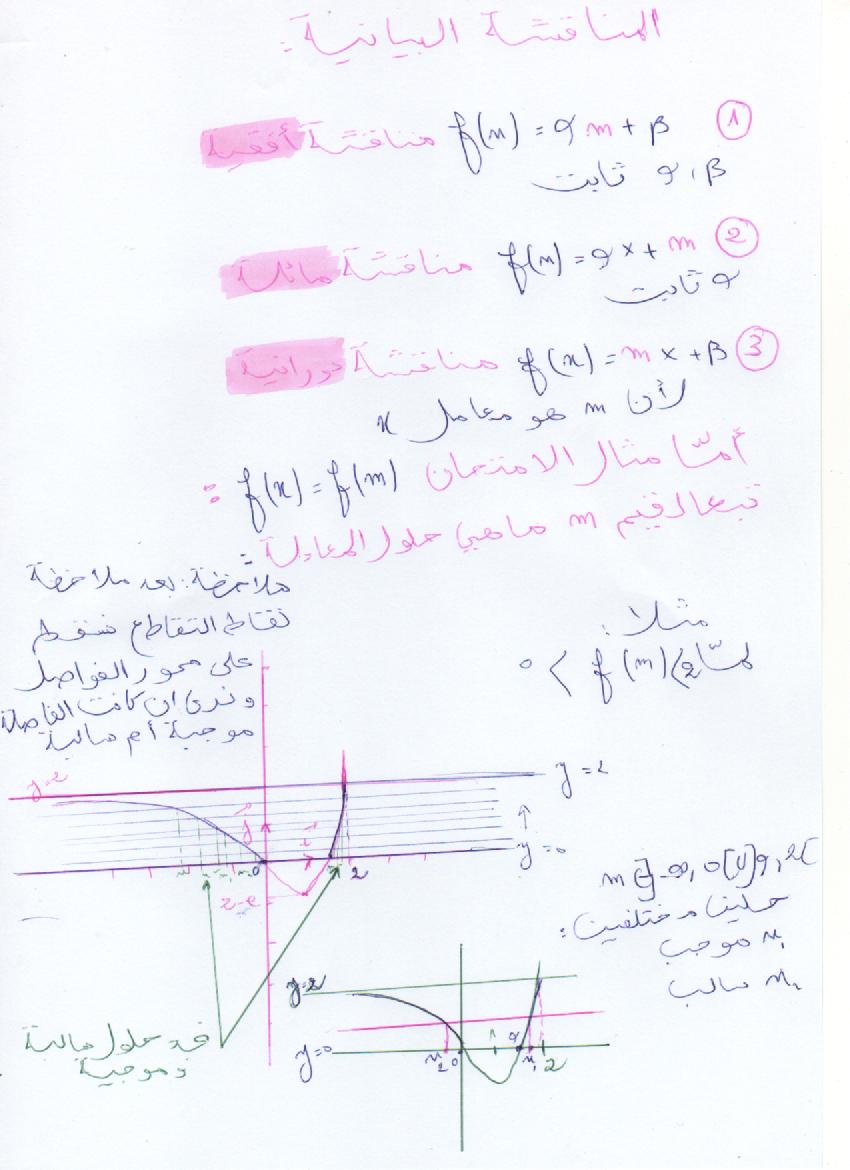 المناقشة البيانية :
① f(x) = αm + β مناقشة أفقية
α, β ثابت
② f(x) = αx + m مناقشة مائلة
α ثابت
③ f(x) = mx + β مناقشة دورانية
لأن m هو معامل x
أمّا مثال الامتحان f(x) = f(m) :
تبعا لقيم m ما هي حلول المعادلة :
ملاحظة: بعد ملاحظة
نقاط التقاطع نسقط
على محور الفواصل
ونرى ان كانت الفاصلة
موجبة أم سالبة
مثلا :
لمّا 2> f(m) > 0
y=2
y=2
j
i
y=0
0
2
2-e
m ∈ ]-∞, 0[ U ]α, 2[
حلين مختلفين :
x₁ موجب
x₂ سالب
y=2
y=0
x₂
0
1
α
x₁
2
فيه حلول سالبة
وموجبة